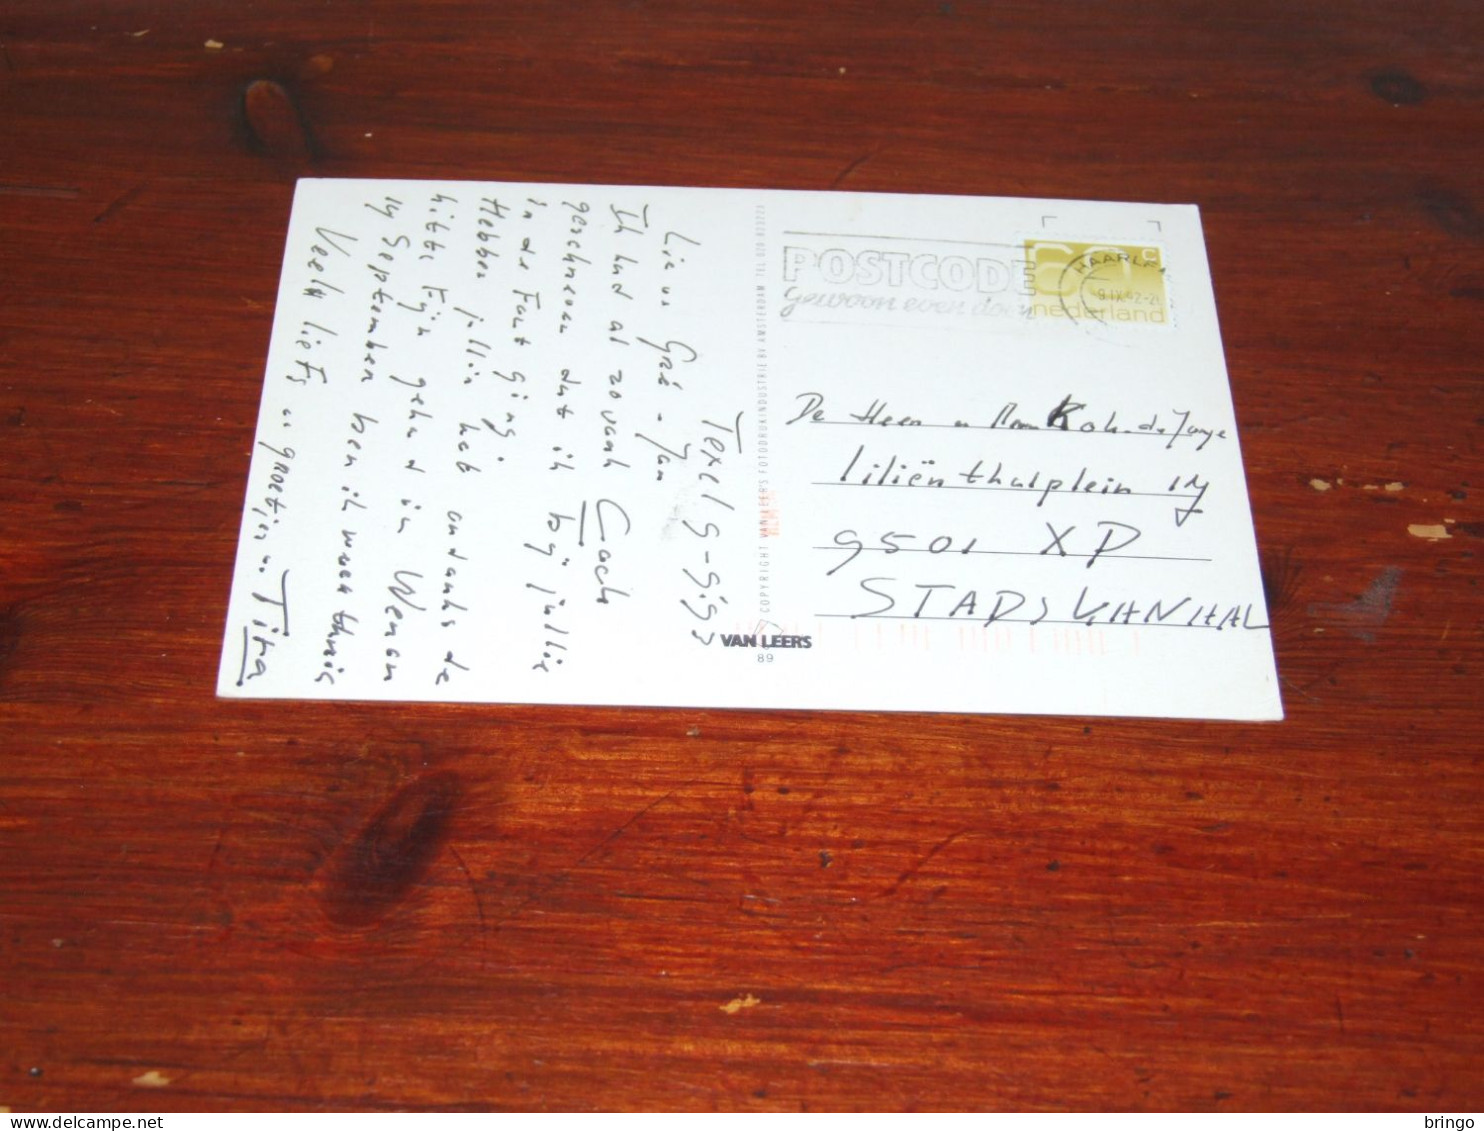 Texel 5-9.92
Lieve Gré - Jan
Ik had al zovank Coch
geschreven dat ik bij jullie
in de Fort ging.
Hebben jullie het ondanks de
hitte fijn gehad in Wenen
14 September ben ik weer thuis
Veel liefs en groetjes Tita
POSTCODE
gewoon even doen
60 c
nederland
HAARLEM
9.IX.92-20
De Heer en Mevr Kok-de Jonge
Liliënthalplein 14
9501 XP
STADSKANAAL
COPYRIGHT VAN LEER'S FOTODRUKINDUSTRIE BV AMSTERDAM TEL 020-823221
VAN LEER'S
89
bringo